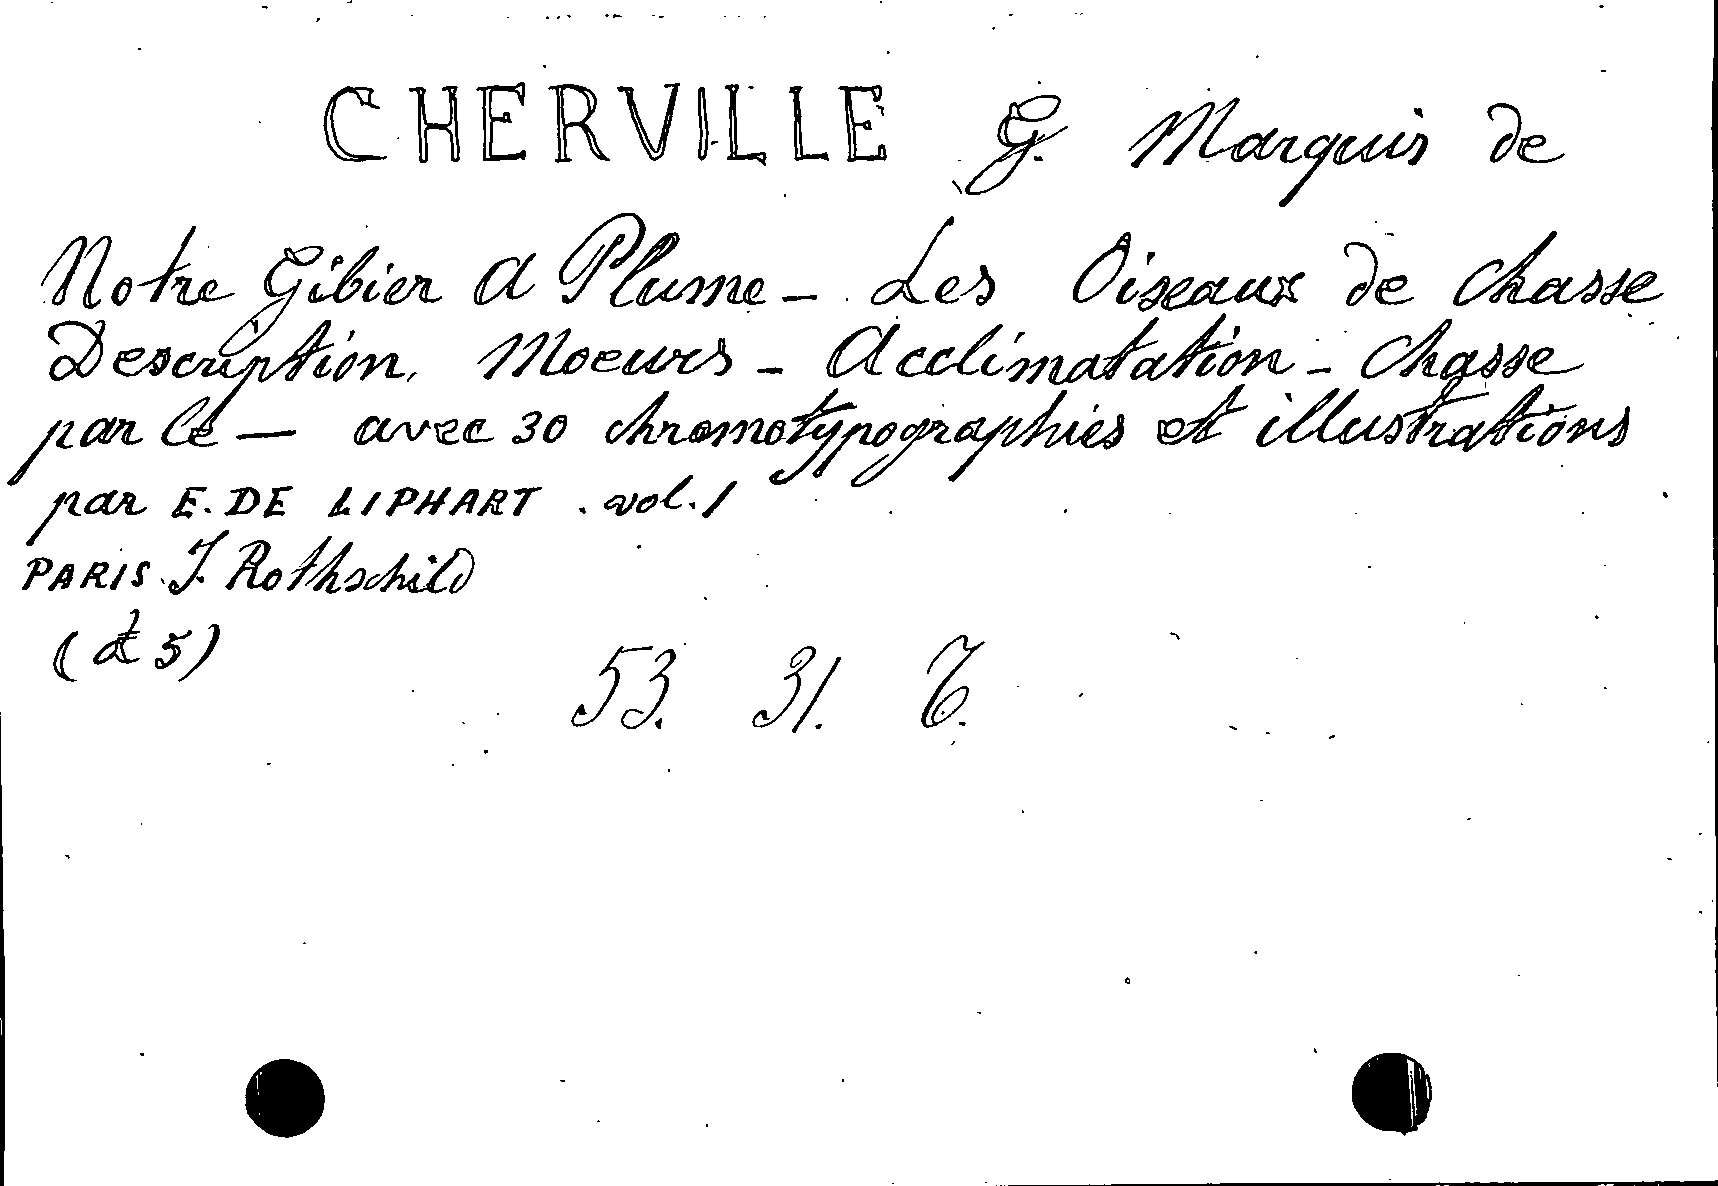 CHERVILLE G. Marquis de
Notre Gibier A Plume - Les Oiseaux de Chasse
Description, Moeurs - Acclimatation - Chasse
par le — avec 30 chromotypographies et illustrations
par E. DE LIPHART. vol. 1
PARIS. J. Rothschild
5)
53. 31.